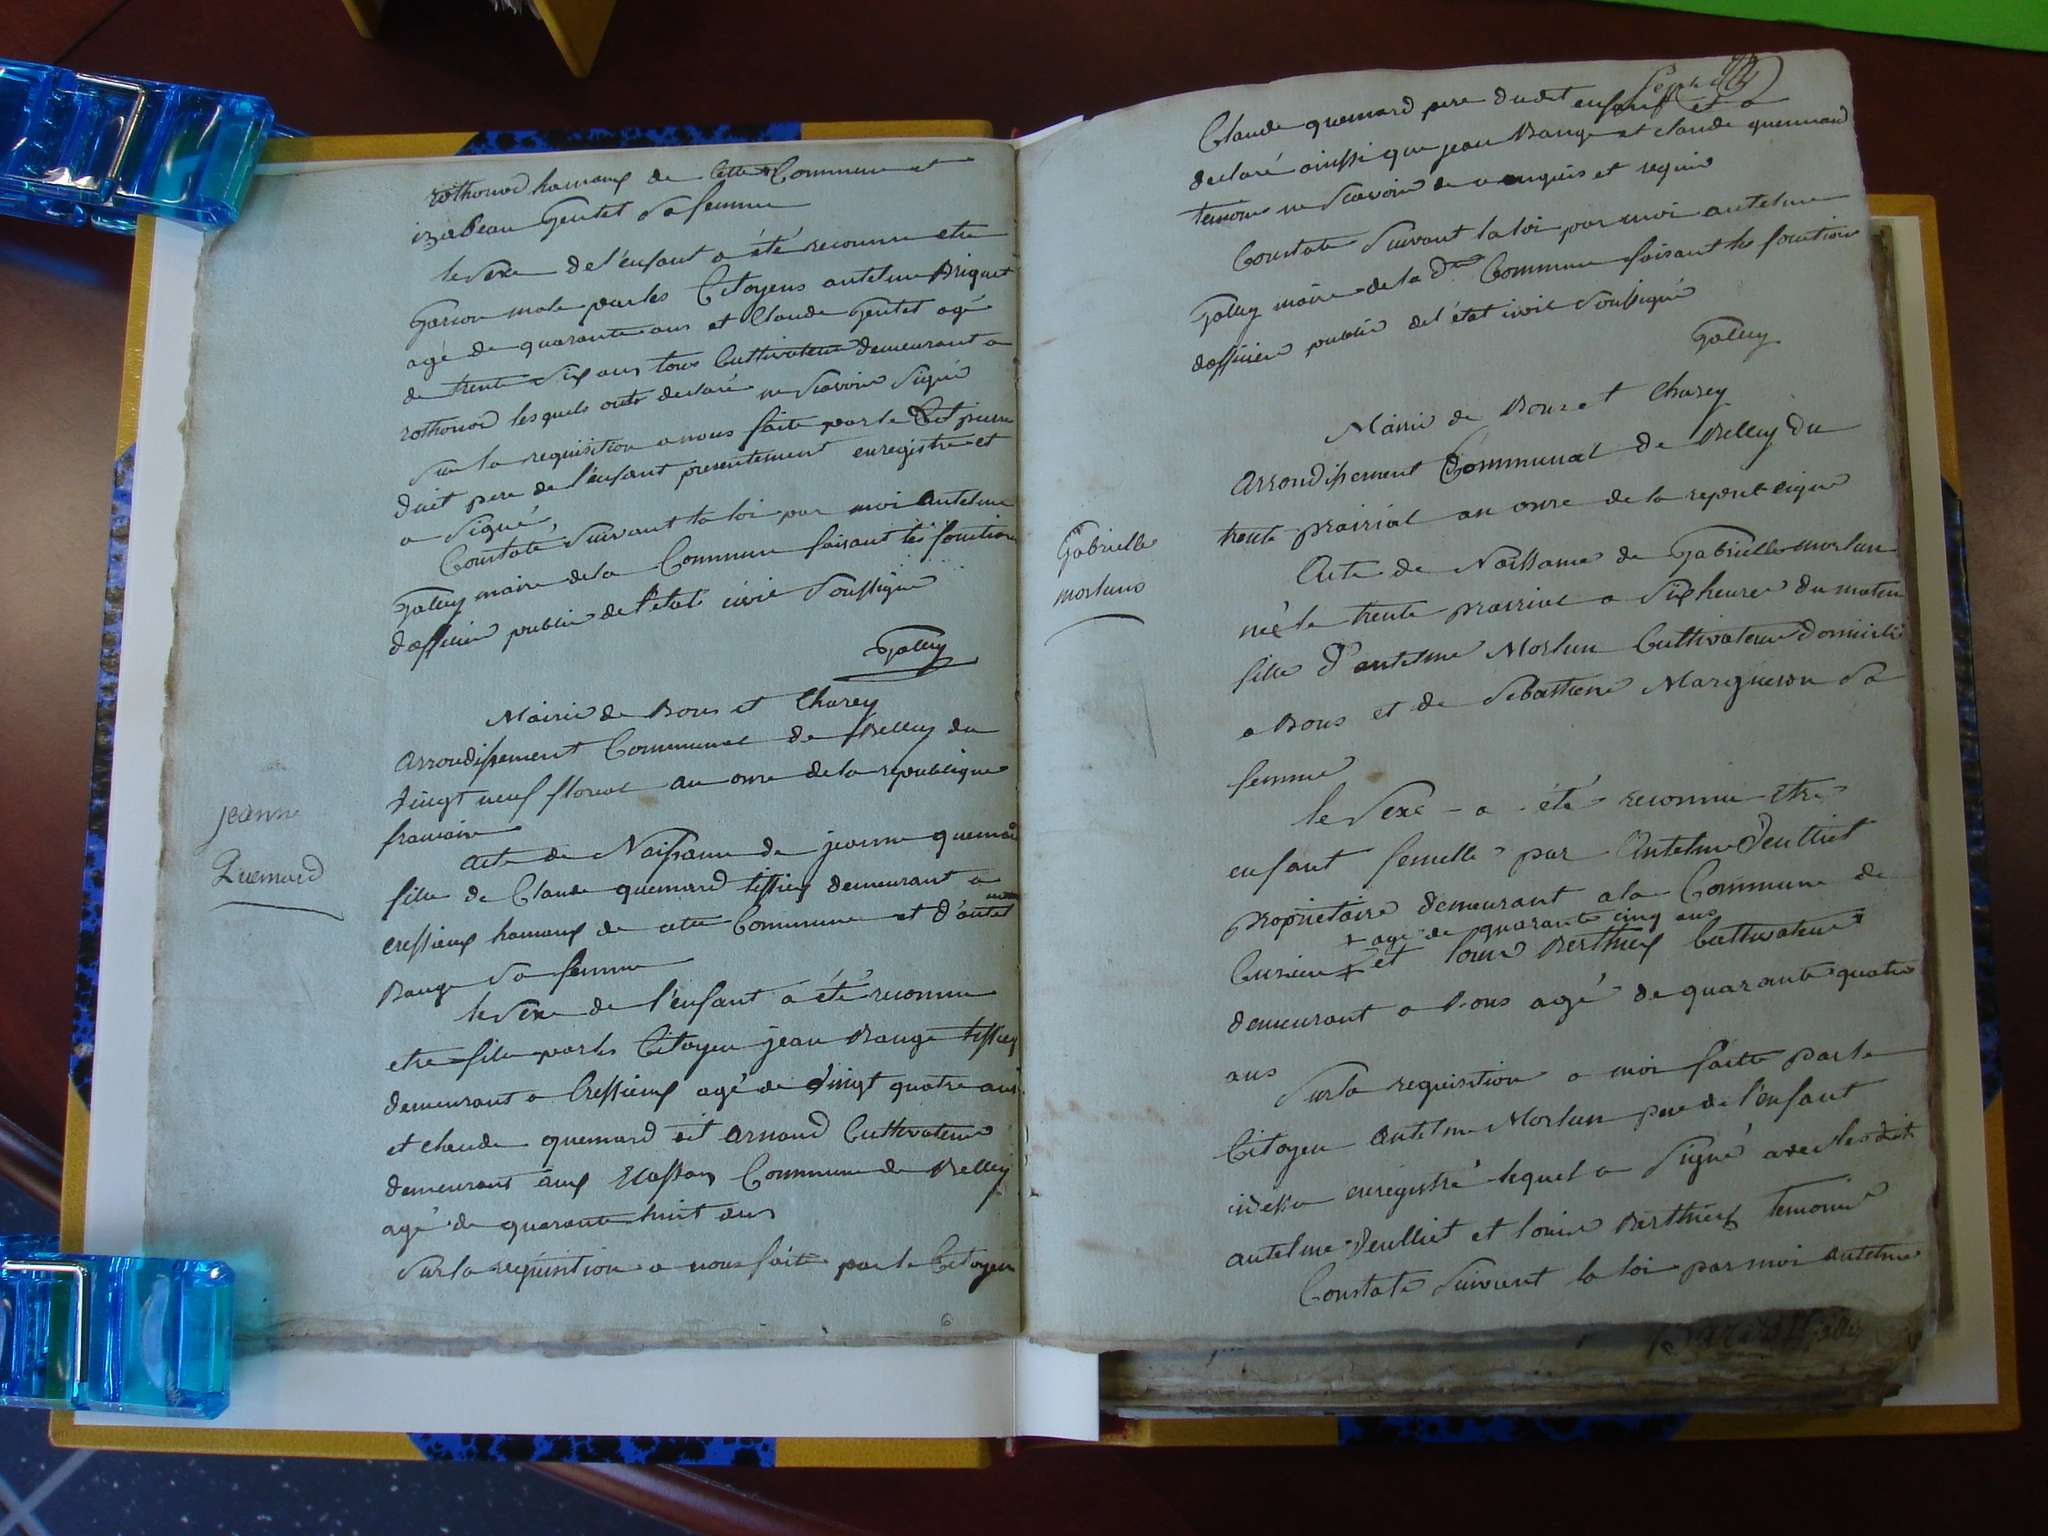 rothonod hameaux de cette Commune et
izabeau Gentet sa femme
le sexe de l'enfant a été reconnu etre
Garson male par les Citoyens antelme Briquet
agé de quarante ans et Claude Gentet agé
de trente six ans tous Cultivateur demeurant a
rothonod lesquels onts declaré ne scavoir signé
sur la requisition a nous faite par le Cit pierre
duit pere de l'enfant presentement enregistre et
a signé,
Constate suivant la loi par moi antelme
Galley maire de la Commune faisant les fonction
dofficier public de l'état civil soussigné
Galley
Mairie de Bons et Charey
arrondissement Communal de Belley du
vingt neuf floreal an onze de la republique
francaise
jeanne
Quemard
acte de Naissance de jeanne quemard
fille de Claude quemard tissier demeurant a
cressieux hameaux de cette Commune et d'antel
me
Bauge sa femme
le sexe de l'enfant a été reconnu
etre fille par les Citoyen jean Bauge tissier
demeurant a Cressieux agé de vingt quatre ans
et claude quemard dit arnaud Cultivateur
demeurant aux Commune de Belley
agé de quarante huit ans
sur la requisition a nous faite par le Citoyen
6
Claude quemard pere dudit enfant et a
declaré ainssi que jean Bauge et claude quemard
temoins ne scavoir de a enquis et requis
Constate suivant la loi par moi antelme
Galley maire de la d.te Commune faisant les fonction
dofficier public de l'état civil soussigné
Galley
Mairie de Bons et Charey
arrondissement Communal de Belley du
trente prairial an onze de la republique
Gabrielle
morlun
Acte de Naissance de Gabrielle morlun
née le trente prairial a six heures du matin
fille d'antelme Morlun Cultivateur domicilié
a Bons et de sebastiene Margueron sa
femme
le sexe a été reconnu etre
enfant femelle par Antelme Deulliet
propriétaire demeurant a la Commune de
+ agé de quarante cinq ans
Cuzieu + et louis Berthier Cultivateur
demeurant a Bons agé de quarante quatre
ans
sur la requisition a moi faitte par le
Citoyen antelme Morlun pere de l'enfant
cidessu enregistré lequel a signé avec lesdits
antelme Deulliet et louis Berthier temoins
Constate suivant la loi par moi antelme